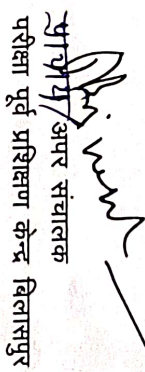 प्राचार्य/अपर संचालक
परीक्षा पूर्व प्रशिक्षण केन्द्र बिलासपुर